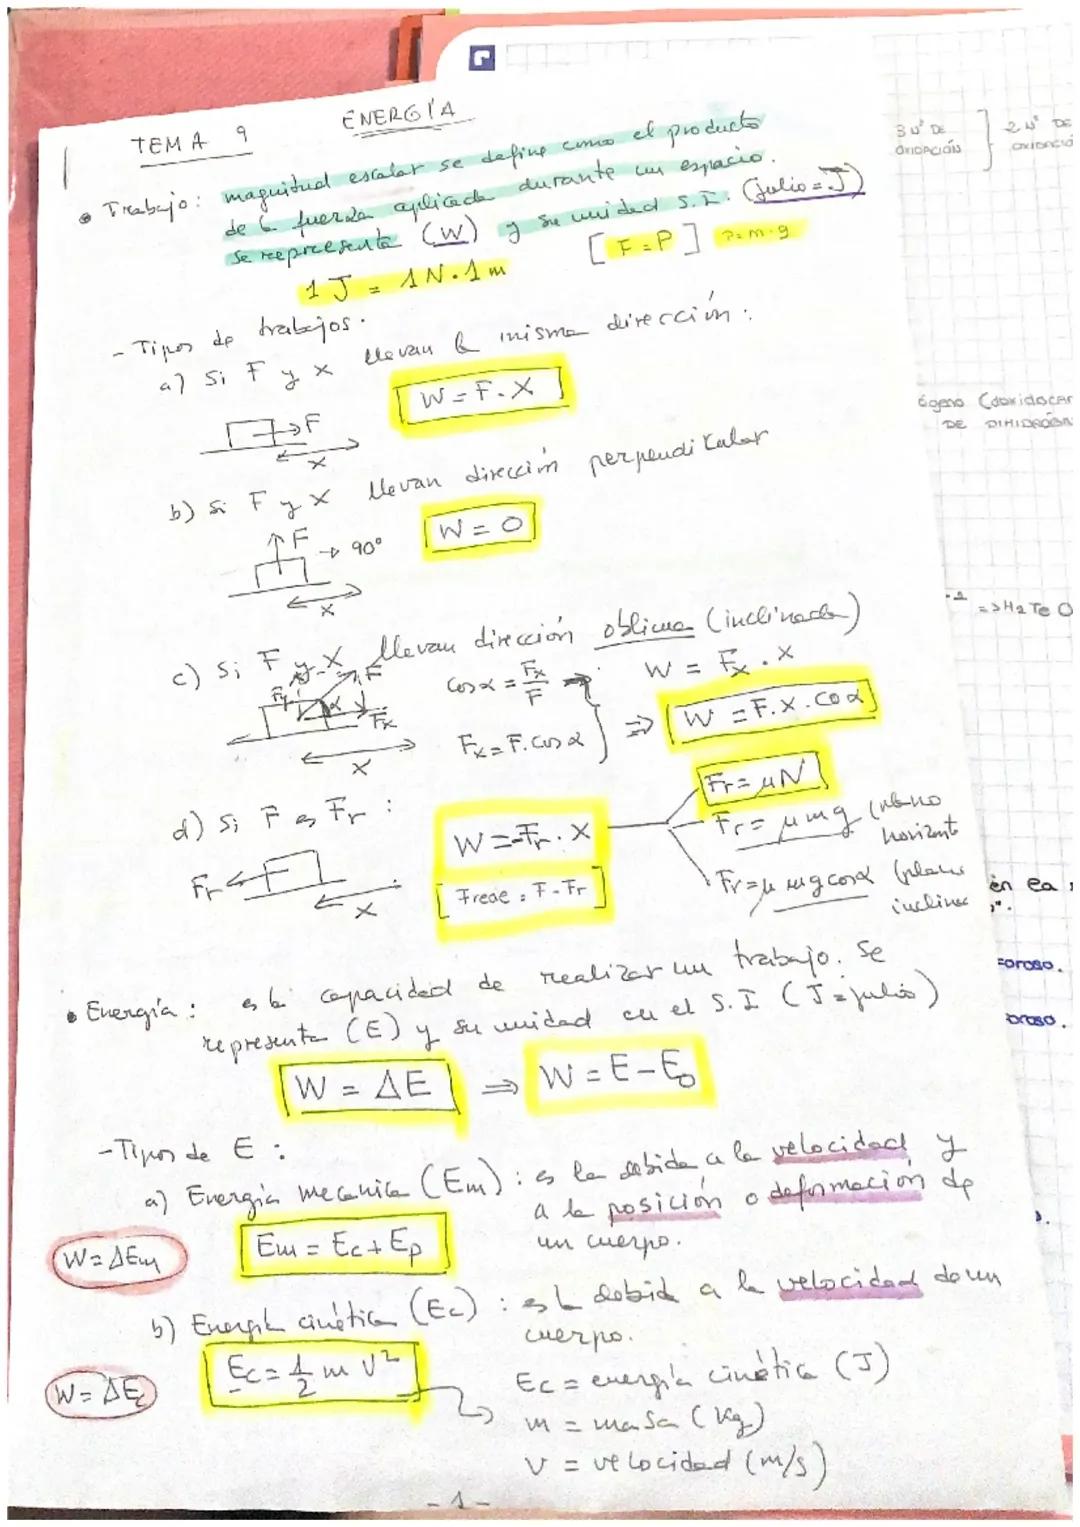 TEMA 9 ENERGÍA
• Trabajo: magnitud escalar se define como el producto
de la fuerza aplicada durante un espacio.
se representa (W) y su unidad S.I. (julio = J)
1 J = 1N · 1 m [F = P] P = m · g
- Tipos de trabajos.
a) Si F y x llevan la misma dirección:
W = F · X
F
x
b) Si F y X llevan dirección perpendicular
F → 90° W = 0
x
c) Si F y X llevan dirección oblicua (inclinada)
Fy F α Fx
x
cos α = Fx/F W = Fx · X
Fx = F. cos α ⇒ W = F. x. cos α
d) Si F es Fr :
Fr x
W = -Fr · X
[Freoe = F - Fr]
Fr = μN
Fr = μmg (plano
horizont
Fr = μ mg cos α (plano
incline
• Energía: es la capacidad de realizar un trabajo. Se
representa (E) y su unidad en el S.I (J = julio)
W = ΔE ⇒ W = E - E₀
- Tipos de E :
a) Energía mecánica (Em) : es la debida a la velocidad y
a la posición o deformación de
un cuerpo.
W = ΔEm Em = Ec + Ep
b) Energía cinética (Ec) : es la debida a la velocidad de un
cuerpo.
W = ΔEc Ec = 1/2 m v²
Ec = energía cinética (J)
m = masa (kg)
v = velocidad (m/s)
- 1 -
3 Nº DE
OXIDACIÓN
2 Nº DE
DE DIHIDRÓGEN
=> H2 Te O
én ea
foroso.
oroso.